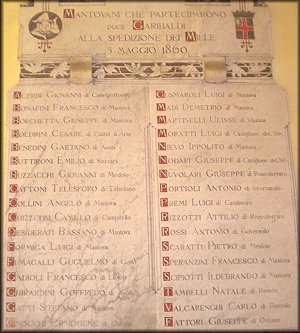 MANTOVANI CHE PARTECIPARONO
DUCE GARIBALDI
ALLA SPEDIZIONE DEI MILLE
5 MAGGIO 1860
ACERBI GIOVANNI di Castelgoffredo
BONAFINI FRANCESCO di Mantova
BORCHETTA GIUSEPPE di Mantova
BOLDRINI CESARE di Castel d'Ario
BENEDINI GAETANO di Asola
BUTTIRONI EMILIO di Suzzara
BUZZACCHI GIOVANNI di Medole
CATTONI TELESFORO di Tabellano
COLLINI ANGELO di Mantova
CHIZZOLINI CAMILLO di Campitello
DESIDERATI BASSANO di Mantova
FORMIGA LUIGI di Mantova
FUMAGALLI GUGLIELMO di
GADIOLI FRANCESCO di
GHIRARDINI GOFFREDO di Asola
GATTI STEFANO di Mantova
GNOCCHI ERMOGENE di
GISMAROLI LUIGI di Mantova
MADI DEMETRIO di Mantova
MARTINELLI ULISSE di Mantova
MORATTI LUIGI di Castiglione del. Stiv.
NIEVO IPPOLITO di Mantova
NODARI GIUSEPPE di Castiglione del. Stiv.
NUVOLARI GIUSEPPE di Roncoferraro
PORTIOLI ANTONIO di Scorzarolo
PREMI LUIGI di Casalmoro
RIZZOTTI ATTILIO di Roncoferraro
ROSSI ANTONIO di Governolo
SCARATTI PIETRO di Medole
SPERANZINI FRANCESCO di Mantova
SCIPIOTTI ILDEBRANDO di Mantova
TAMBELLI NATALE di Revere
VALCARENGHI CARLO di
FATTORI GIUSEPPE di Ostiano